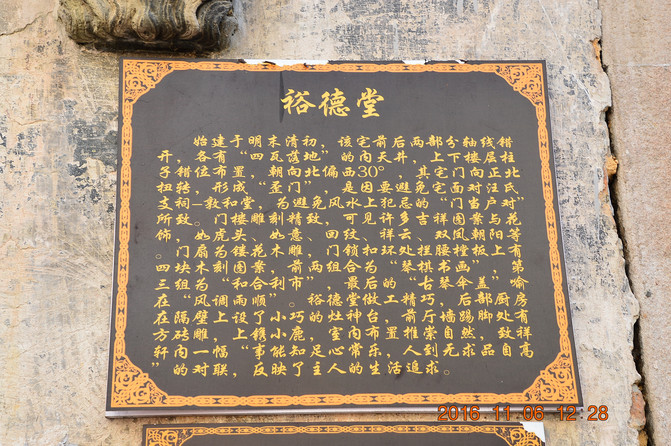 裕德堂
始建于明末清初，该宅前后两部分轴线错
开，各有“四瓦落地”的内天井，上下楼层柱
子错位布置，朝向北偏西30°，其宅门向正北
扭转，形成“歪门”，是因要避免宅面对汪氏
支祠—敦和堂，为避免风水上犯忌的“门当户对”
所致。门楼雕刻精致，可见许多吉祥图案与花
饰，如虎头、如意、回纹、祥云、双凤朝阳等
。门扇为镂花木雕，门锁扣环处拦腰樘板上有
四块木刻图案，前两组合为“琴棋书画”，第
三组为“和合利市”，最后的“古琴伞盖”喻
在“风调雨顺”。裕德堂做工精巧，后部厨房
在隔壁上设了小巧的灶神台，前厅墙踢脚处有
方砖雕，上镌小鹿，室内布置推崇自然，致祥
轩内一幅“事能知足心常乐，人到无求品自高
”的对联，反映了主人的生活追求。
2016.11.06 12:28